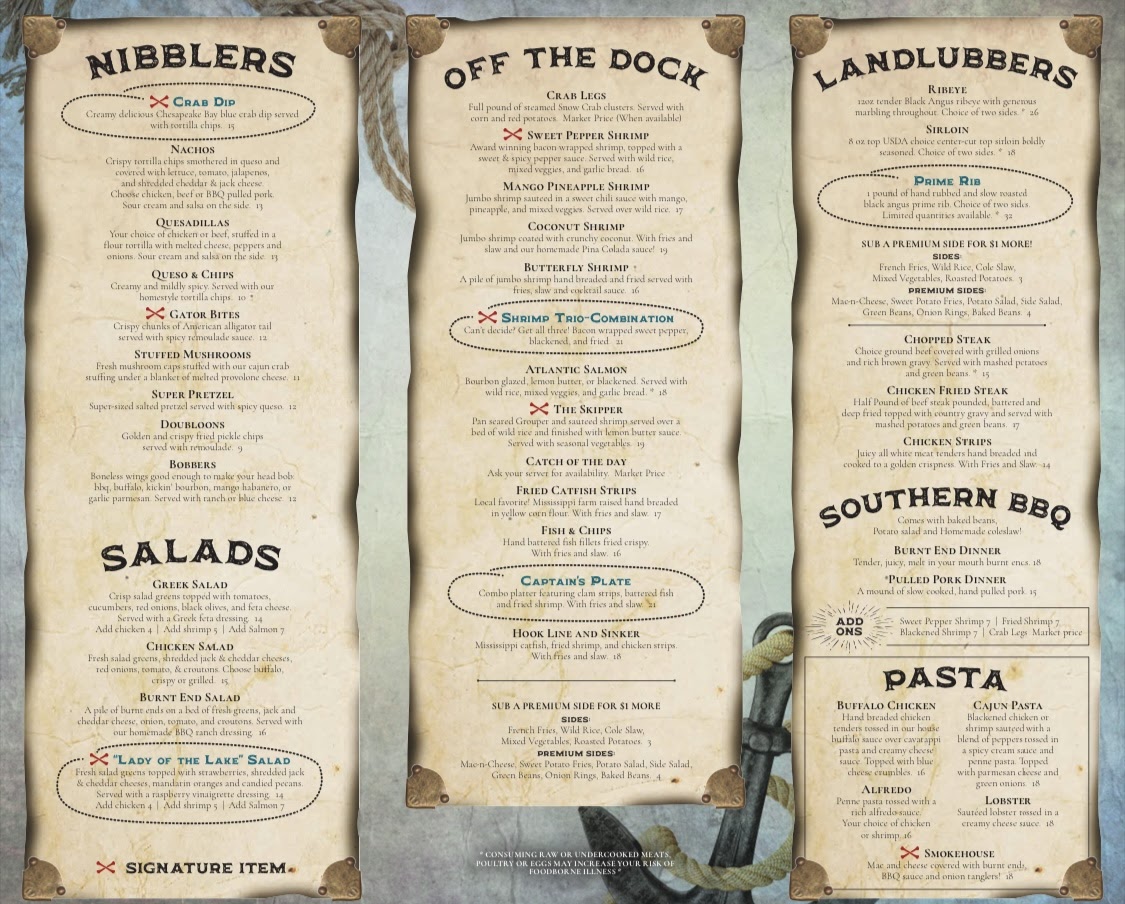 NIBBLERS
CRAB DIP
Creamy delicious Chesapeake Bay blue crab dip served
with tortilla chips. 15
NACHOS
Crispy tortilla chips smothered in queso and
covered with lettuce, tomato, jalapenos,
and shredded cheddar & jack cheese.
Choose chicken, beef or BBQ pulled pork.
Sour cream and salsa on the side. 13
QUESADILLAS
Your choice of chicken or beef, stuffed in a
flour tortilla with melted cheese, peppers and
onions. Sour cream and salsa on the side. 13
QUESO & CHIPS
Creamy and mildly spicy. Served with our
homestyle tortilla chips. 10
GATOR BITES
Crispy chunks of American alligator tail
served with spicy remoulade sauce. 12
STUFFED MUSHROOMS
Fresh mushroom caps stuffed with our cajun crab
stuffing under a blanket of melted provolone cheese. 11
SUPER PRETZEL
Super-sized salted pretzel served with spicy queso. 12
DOUBLOONS
Golden and crispy fried pickle chips
served with remoulade. 9
BOBBERS
Boneless wings good enough to make your head bob:
bbq, buffalo, kickin' bourbon, mango habanero, or
garlic parmesan. Served with ranch or blue cheese. 12
SALADS
GREEK SALAD
Crisp salad greens topped with tomatoes,
cucumbers, red onions, black olives, and feta cheese.
Served with a Greek feta dressing. 14
Add chicken 4 | Add shrimp 5 | Add Salmon 7
CHICKEN SALAD
Fresh salad greens, shredded jack & cheddar cheeses,
red onions, tomato, & croutons. Choose buffalo,
crispy or grilled. 15
BURNT END SALAD
A pile of burnt ends on a bed of fresh greens, jack and
cheddar cheese, onion, tomato, and croutons. Served with
our homemade BBQ ranch dressing. 16
"LADY OF THE LAKE" SALAD
Fresh salad greens topped with strawberries, shredded jack
& cheddar cheeses, mandarin oranges and candied pecans.
Served with a raspberry vinaigrette dressing. 14
Add chicken 4 | Add shrimp 5 | Add Salmon 7
SIGNATURE ITEM
OFF THE DOCK
CRAB LEGS
Full pound of steamed Snow Crab clusters. Served with
corn and red potatoes. Market Price (When available)
SWEET PEPPER SHRIMP
Award winning bacon wrapped shrimp, topped with a
sweet & spicy pepper sauce. Served with wild rice,
mixed veggies, and garlic bread. 16
MANGO PINEAPPLE SHRIMP
Jumbo shrimp sauteed in a sweet chili sauce with mango,
pineapple, and mixed veggies. Served over wild rice. 17
COCONUT SHRIMP
Jumbo shrimp coated with crunchy coconut. With fries and
slaw and our homemade Pina Colada sauce! 19
BUTTERFLY SHRIMP
A pile of jumbo shrimp hand breaded and fried served with
fries, slaw and cocktail sauce. 16
SHRIMP TRIO-COMBINATION
Can't decide? Get all three! Bacon wrapped sweet pepper,
blackened, and fried. 21
ATLANTIC SALMON
Bourbon glazed, lemon butter, or blackened. Served with
wild rice, mixed veggies, and garlic bread. * 18
THE SKIPPER
Pan seared Grouper and sauteed shrimp served over a
bed of wild rice and finished with lemon butter sauce.
Served with seasonal vegetables. 19
CATCH OF THE DAY
Ask your server for availability. Market Price
FRIED CATFISH STRIPS
Local favorite! Mississippi farm raised hand breaded
in yellow corn flour. With fries and slaw. 17
FISH & CHIPS
Hand battered fish fillets fried crispy.
With fries and slaw. 16
CAPTAIN'S PLATE
Combo platter featuring clam strips, battered fish
and fried shrimp. With fries and slaw. 21
HOOK LINE AND SINKER
Mississippi catfish, fried shrimp, and chicken strips.
With fries and slaw. 18
SUB A PREMIUM SIDE FOR $1 MORE
SIDES:
French Fries, Wild Rice, Cole Slaw,
Mixed Vegetables, Roasted Potatoes. 3
PREMIUM SIDES:
Mac-n-Cheese, Sweet Potato Fries, Potato Salad, Side Salad,
Green Beans, Onion Rings, Baked Beans. 4
* CONSUMING RAW OR UNDERCOOKED MEATS,
POULTRY OR EGGS MAY INCREASE YOUR RISK OF
FOODBORNE ILLNESS *
LANDLUBBERS
RIBEYE
12oz tender Black Angus ribeye with generous
marbling throughout. Choice of two sides. * 26
SIRLOIN
8 oz top USDA choice center-cut top sirloin boldly
seasoned. Choice of two sides. * 18
PRIME RIB
1 pound of hand rubbed and slow roasted
black angus prime rib. Choice of two sides.
Limited quantities available. * 32
SUB A PREMIUM SIDE FOR $1 MORE!
SIDES:
French Fries, Wild Rice, Cole Slaw,
Mixed Vegetables, Roasted Potatoes. 3
PREMIUM SIDES:
Mac-n-Cheese, Sweet Potato Fries, Potato Salad, Side Salad,
Green Beans, Onion Rings, Baked Beans. 4
CHOPPED STEAK
Choice ground beef covered with grilled onions
and rich brown gravy. Served with mashed potatoes
and green beans. * 15
CHICKEN FRIED STEAK
Half Pound of beef steak pounded, battered and
deep fried topped with country gravy and served with
mashed potatoes and green beans. 17
CHICKEN STRIPS
Juicy all white meat tenders hand breaded and
cooked to a golden crispness. With Fries and Slaw 14
SOUTHERN BBQ
Comes with baked beans,
Potato salad and Homemade coleslaw!
BURNT END DINNER
Tender, juicy, melt in your mouth burnt ends. 18
PULLED PORK DINNER
A mound of slow cooked, hand pulled pork. 15
ADD ONS
Sweet Pepper Shrimp 7 | Fried Shrimp 7
Blackened Shrimp 7 | Crab Legs Market price
PASTA
BUFFALO CHICKEN
Hand breaded chicken
tenders tossed in our house
buffalo sauce over cavatappi
pasta and creamy cheese
sauce. Topped with blue
cheese crumbles. 16
ALFREDO
Penne pasta tossed with a
rich alfredo sauce.
Your choice of chicken
or shrimp. 16
CAJUN PASTA
Blackened chicken or
shrimp sauteed with a
blend of peppers tossed in
a spicy cream sauce and
penne pasta. Topped
with parmesan cheese and
green onions. 18
LOBSTER
Sautéed lobster tossed in a
creamy cheese sauce. 18
SMOKEHOUSE
Mac and cheese covered with burnt ends,
BBQ sauce and onion tanglers! 18